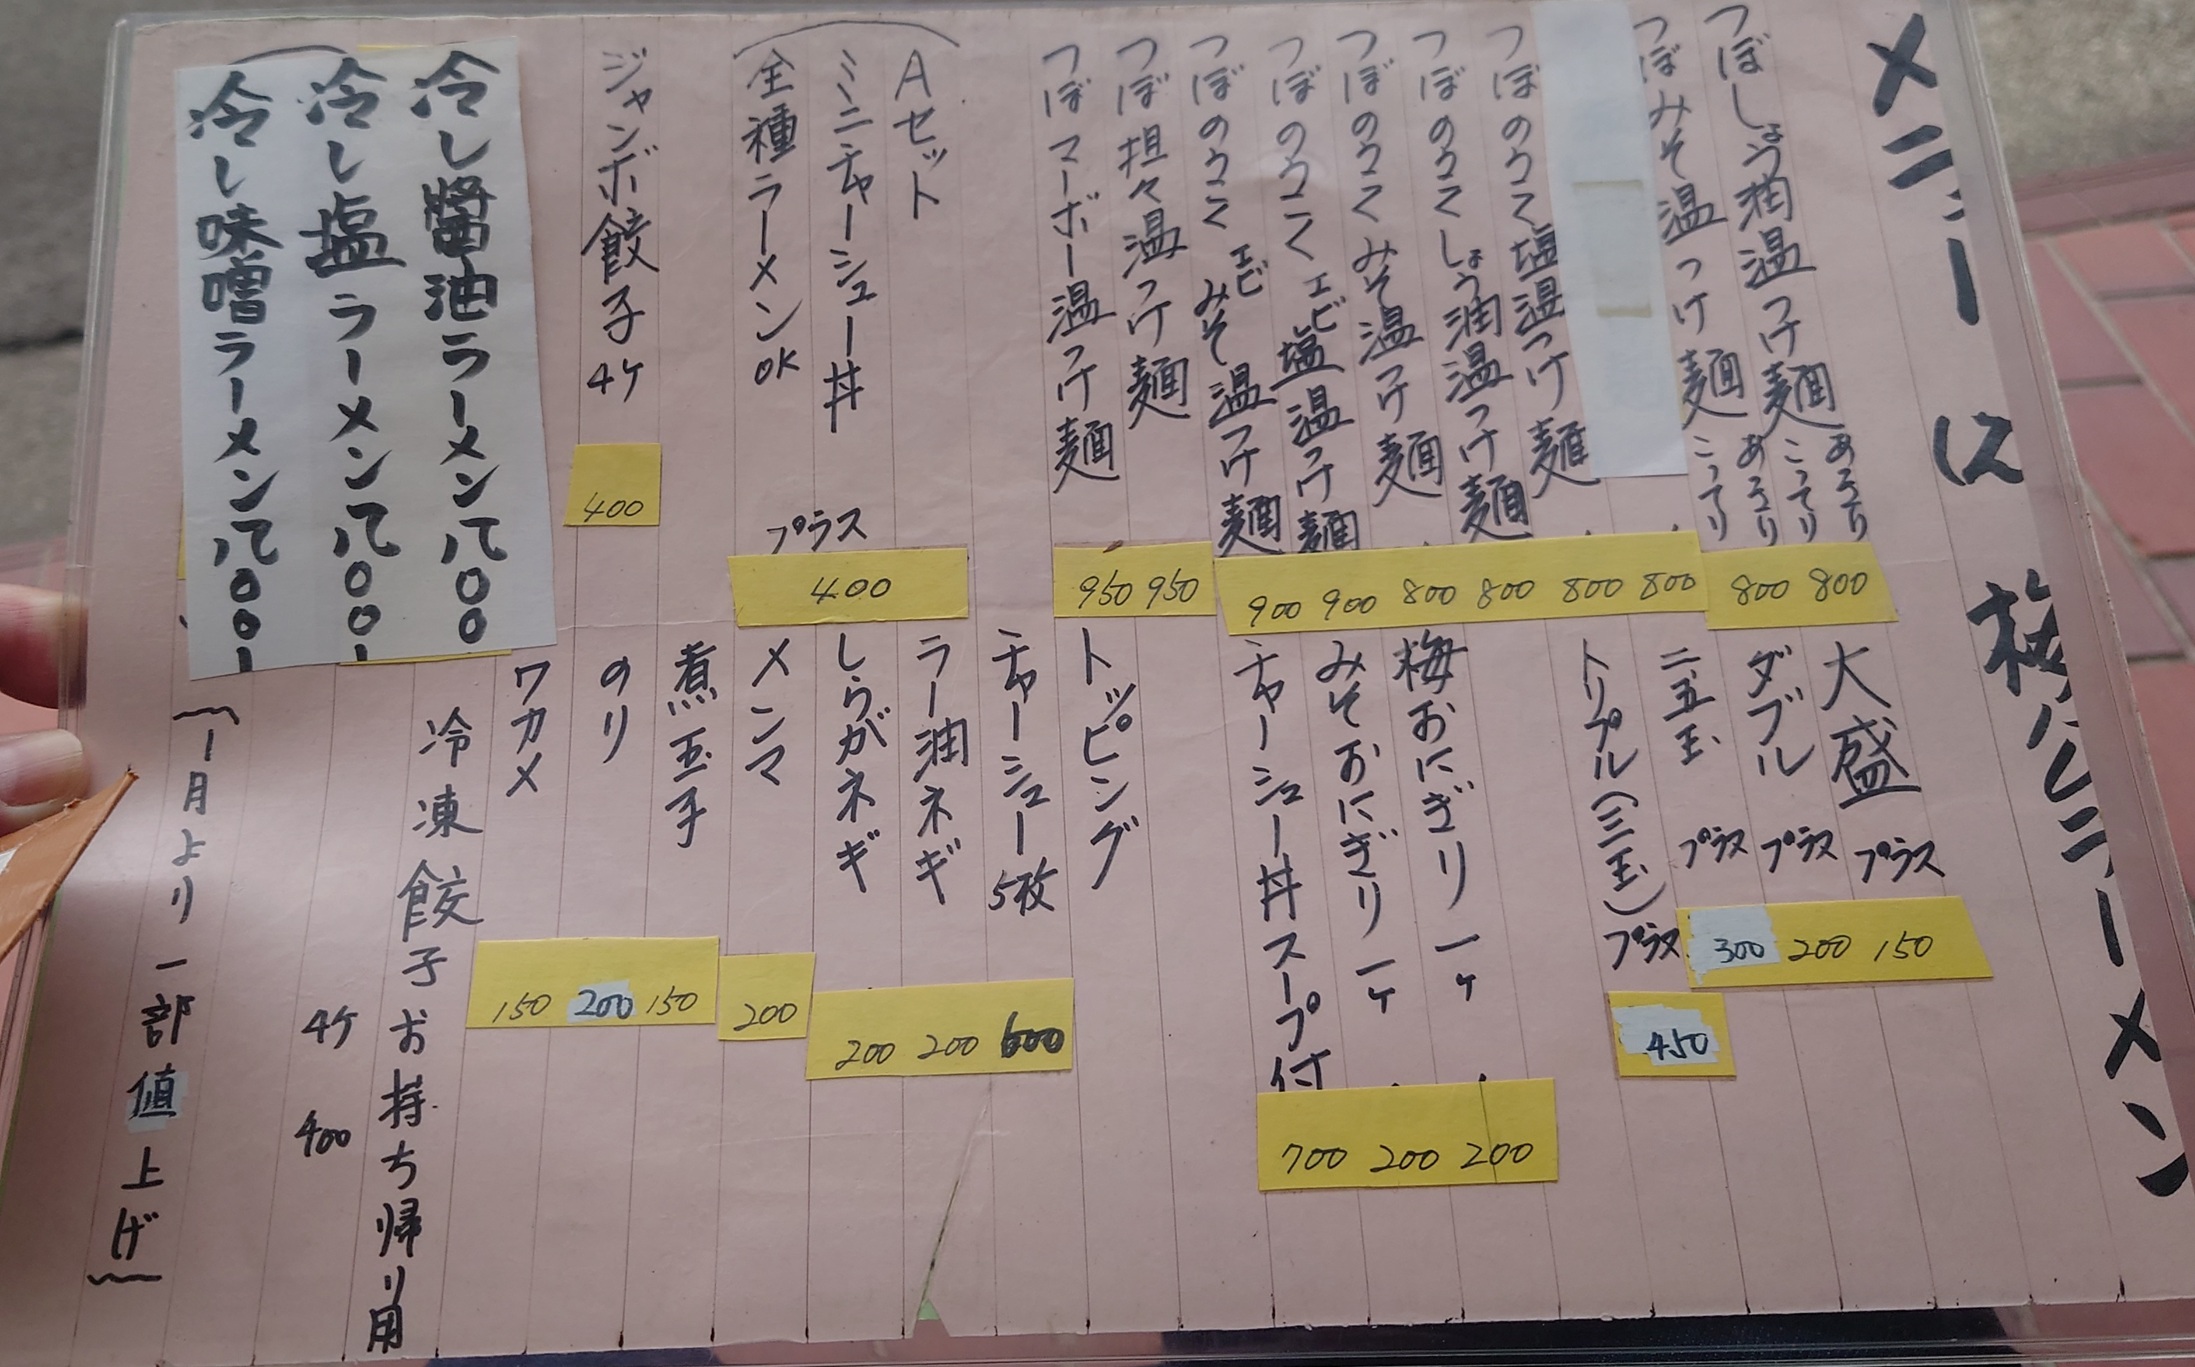 メニー
に
梅
ラーメン
つぼしょう油温つけ麺 あっさり こってり 800 800
つぼみそ温つけ麺 あっさり こってり 800 800
つぼのうこく塩温つけ麺 800
つぼのうこくしょう油温つけ麺 800
つぼのうこくみそ温つけ麺 800
つぼのうこくエビ塩温つけ麺 900
つぼのうこくエビみそ温つけ麺 900
つぼ担々温つけ麺 950
つぼマーボー温つけ麺 950
Aセット
ミニチャーシュー丼
全種ラーメンOK
プラス 400
ジャンボ餃子 4ケ 400
冷し醬油ラーメン八〇〇
冷し塩ラーメン八〇〇ー
冷し味噌ラーメン八〇〇ー
大盛 プラス 150
ダブル プラス 200
二、五玉 プラス 300
トリプル(三玉) プラス 450
梅おにぎり 一ヶ 200
みそおにぎり 一ヶ 200
チャーシュー丼スープ付 700
トッピング
チャーシュー5枚 600
ラー油ネギ 200
しらがネギ 200
メンマ 200
煮玉子 150
のり 200
ワカメ 150
冷凍餃子お持ち帰り用
4ケ 400
(一月より一部値上げ)